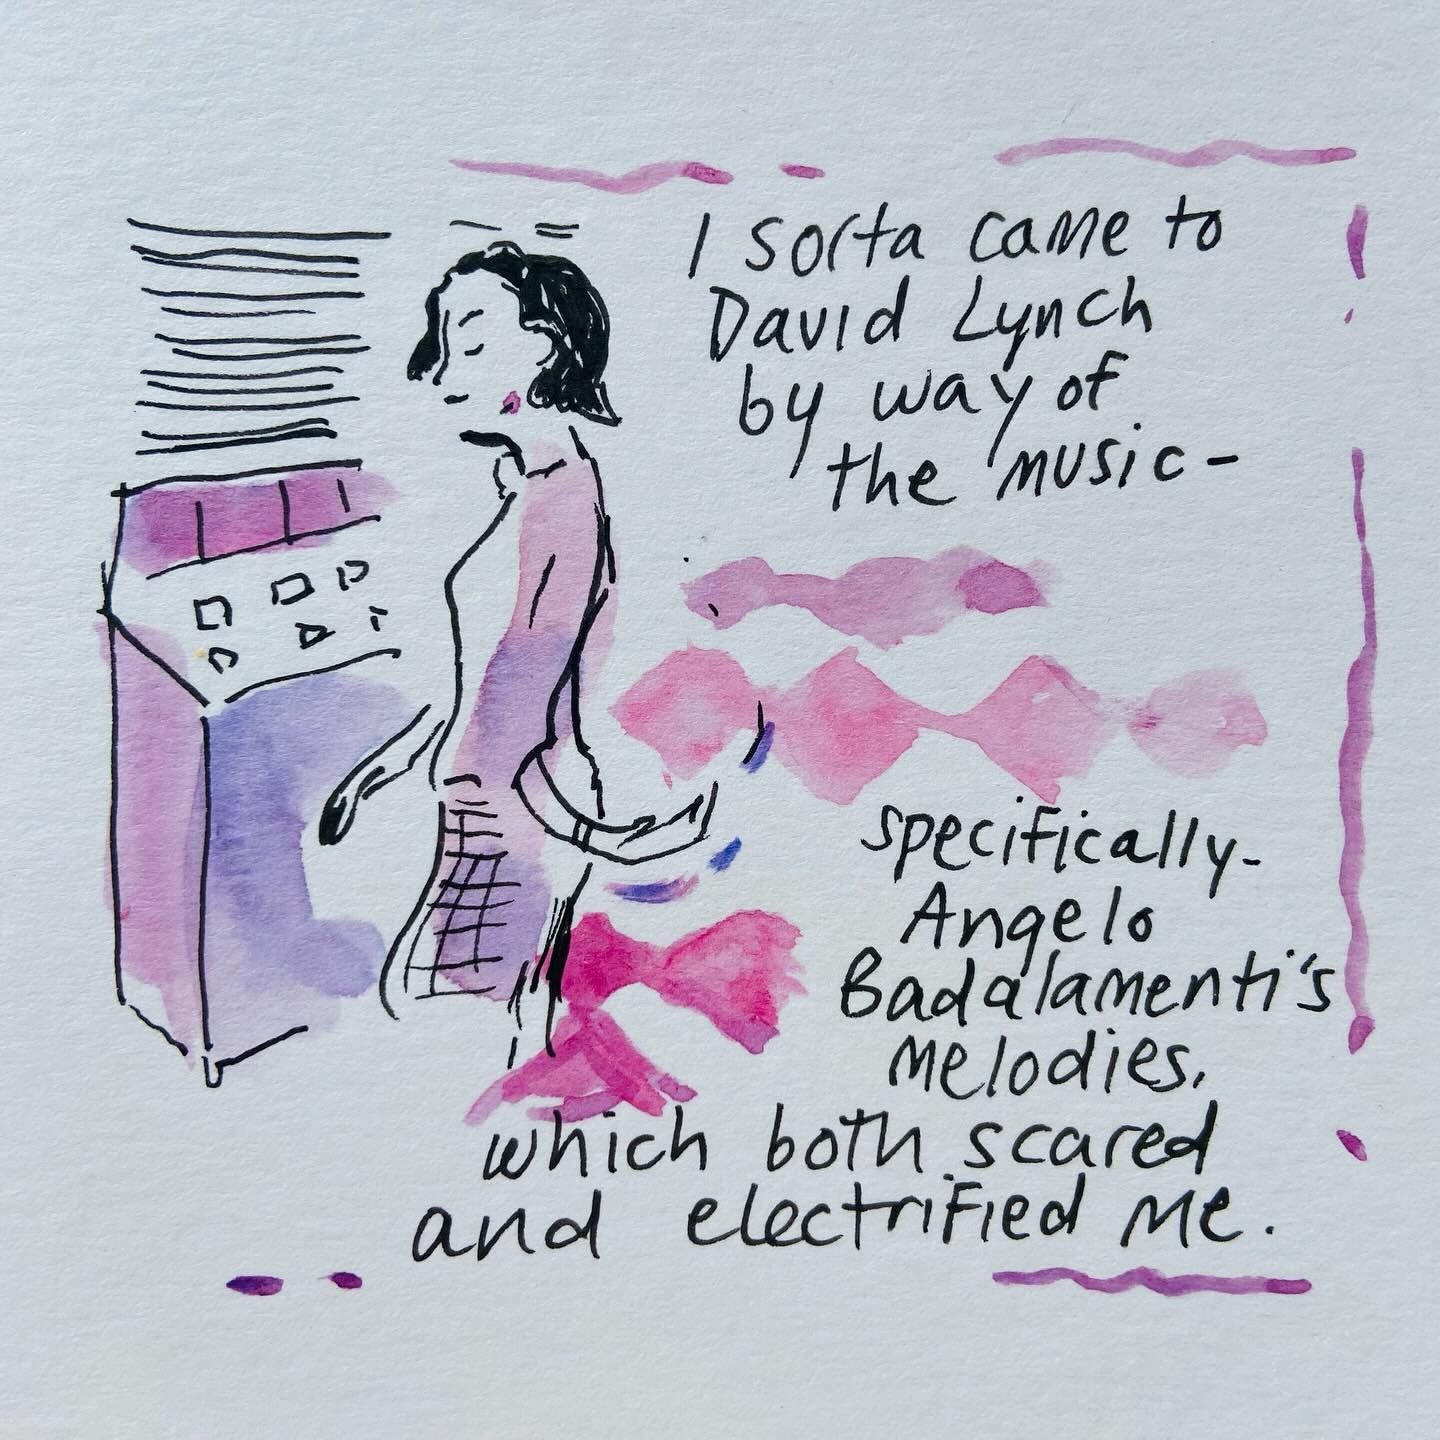 I sorta came to
David Lynch
by way of
the music-
specifically-
Angelo
Badalamenti's
melodies,
which both scared
and electrified me.